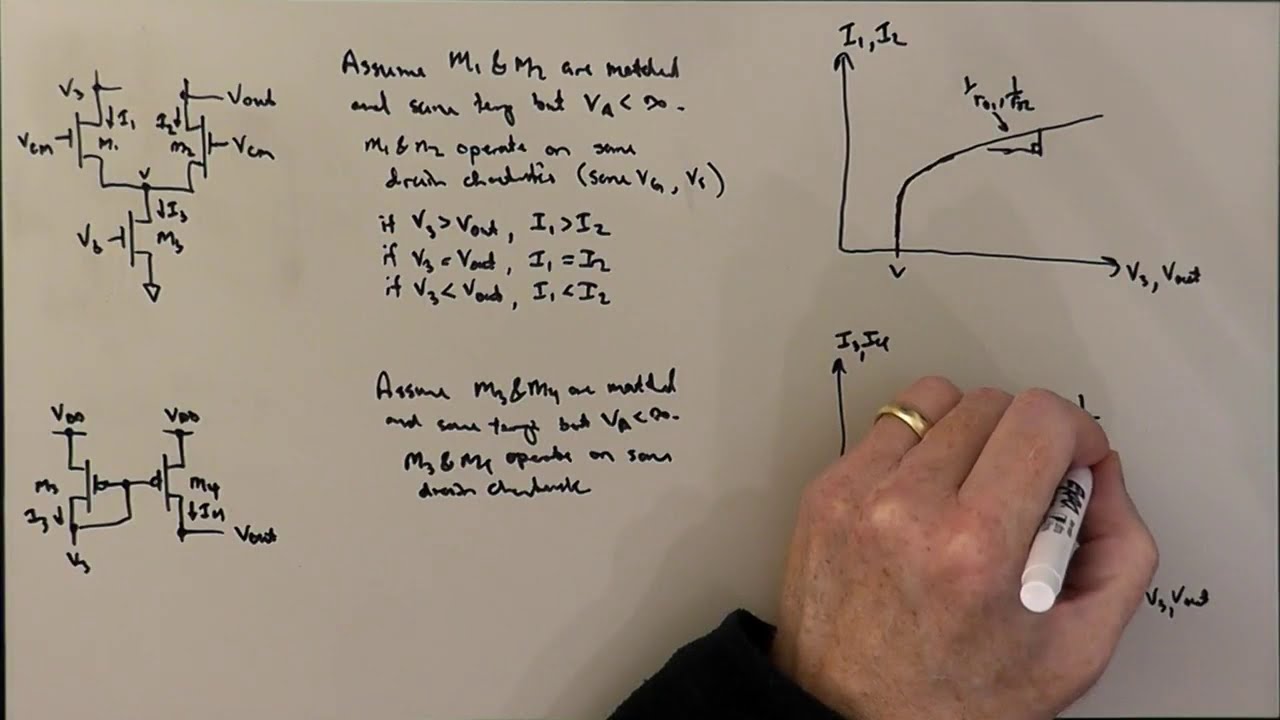 V3
Vout
I1
I2
VCM
M1
M2
VCM
V
I3
Vb
M3
Assume M1 & M2 are matched
and same temp but VA < ∞.
M1 & M2 operate on same
drain (same VG, VS)
if V3 > Vout, I1 > I2
if V3 = Vout, I1 = I2
if V3 < Vout, I1 < I2
I1, I2
1/ro1, 1/ro2
V
V3, Vout
VDD
VDD
M3
M4
I3
I4
Vout
V3
Assume M3 & M4 are matched
and same temp but VA < ∞.
M3 & M4 operate on same
drain
I3, I4
V3, Vout